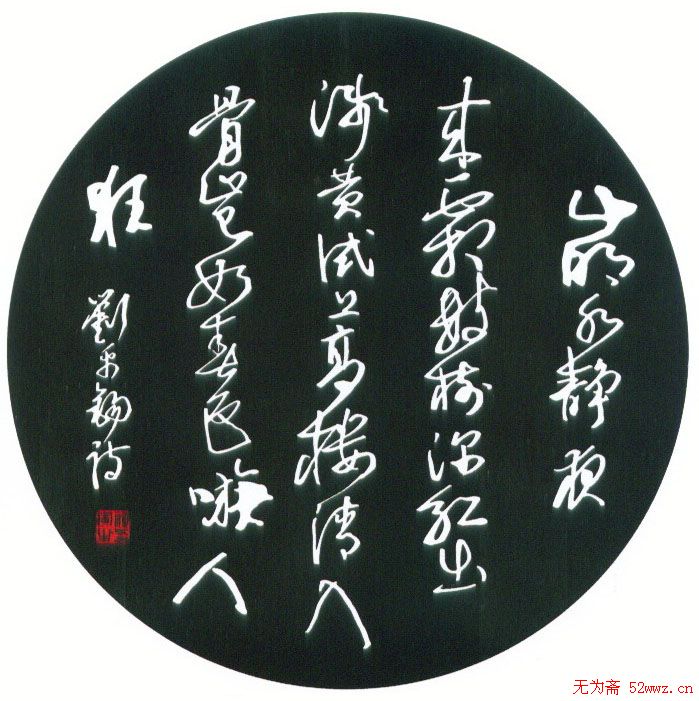 山明水静夜
来霜数树深红出
浅黄试上高楼清入
骨岂如春色嗾人
狂
劉禹錫诗
无为斋 52wwz.cn